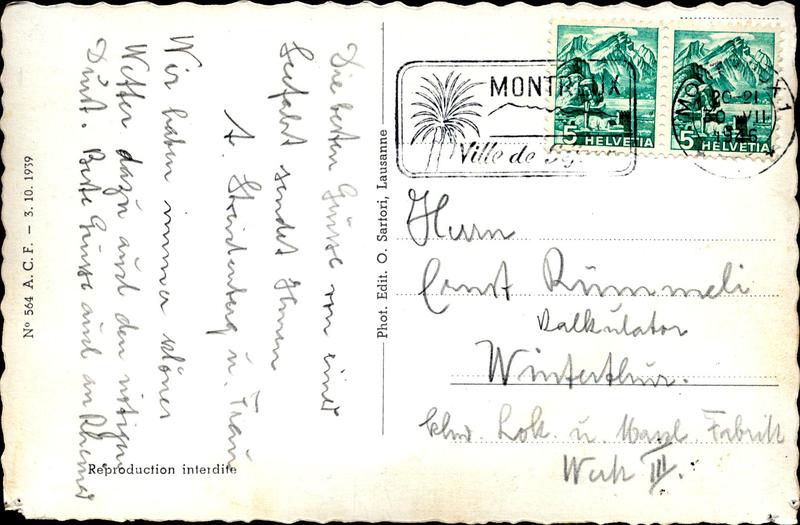 Die besten Grüsse von einer
Seefahrt sendet Ihnen
A. Steinenberg u. Frau
Wir haben immer schönes
Wetter dazu und den nötigen
Durst. Beste Grüsse auch an
Nº 564 A. C. F. — 3. 10. 1939
Reproduction interdite
Phot. Edit. O. Sartori, Lausanne
MONTREUX
Ville de
5 HELVETIA
5 HELVETIA
20-21
30 VII
1946
Herrn
Ernst Rümmeli
Kalkulator
Winterthur.
Schw. Lok. u Masch. Fabrik
Werk III.